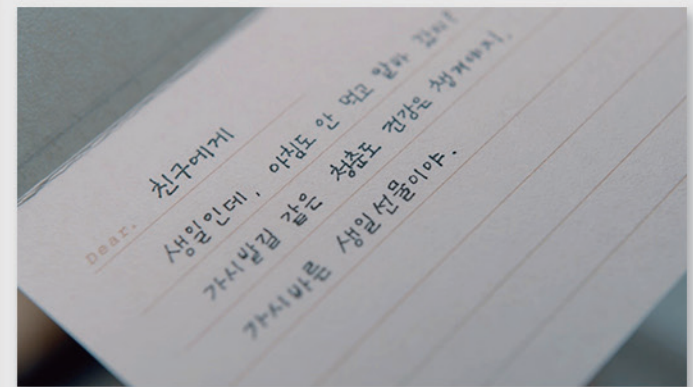 Dear. 친구에게
생일인데, 아침도 안 먹고 알바
가시밭길 같은 청춘도 건강은 챙겨야지.
가시바름 생일선물이야.